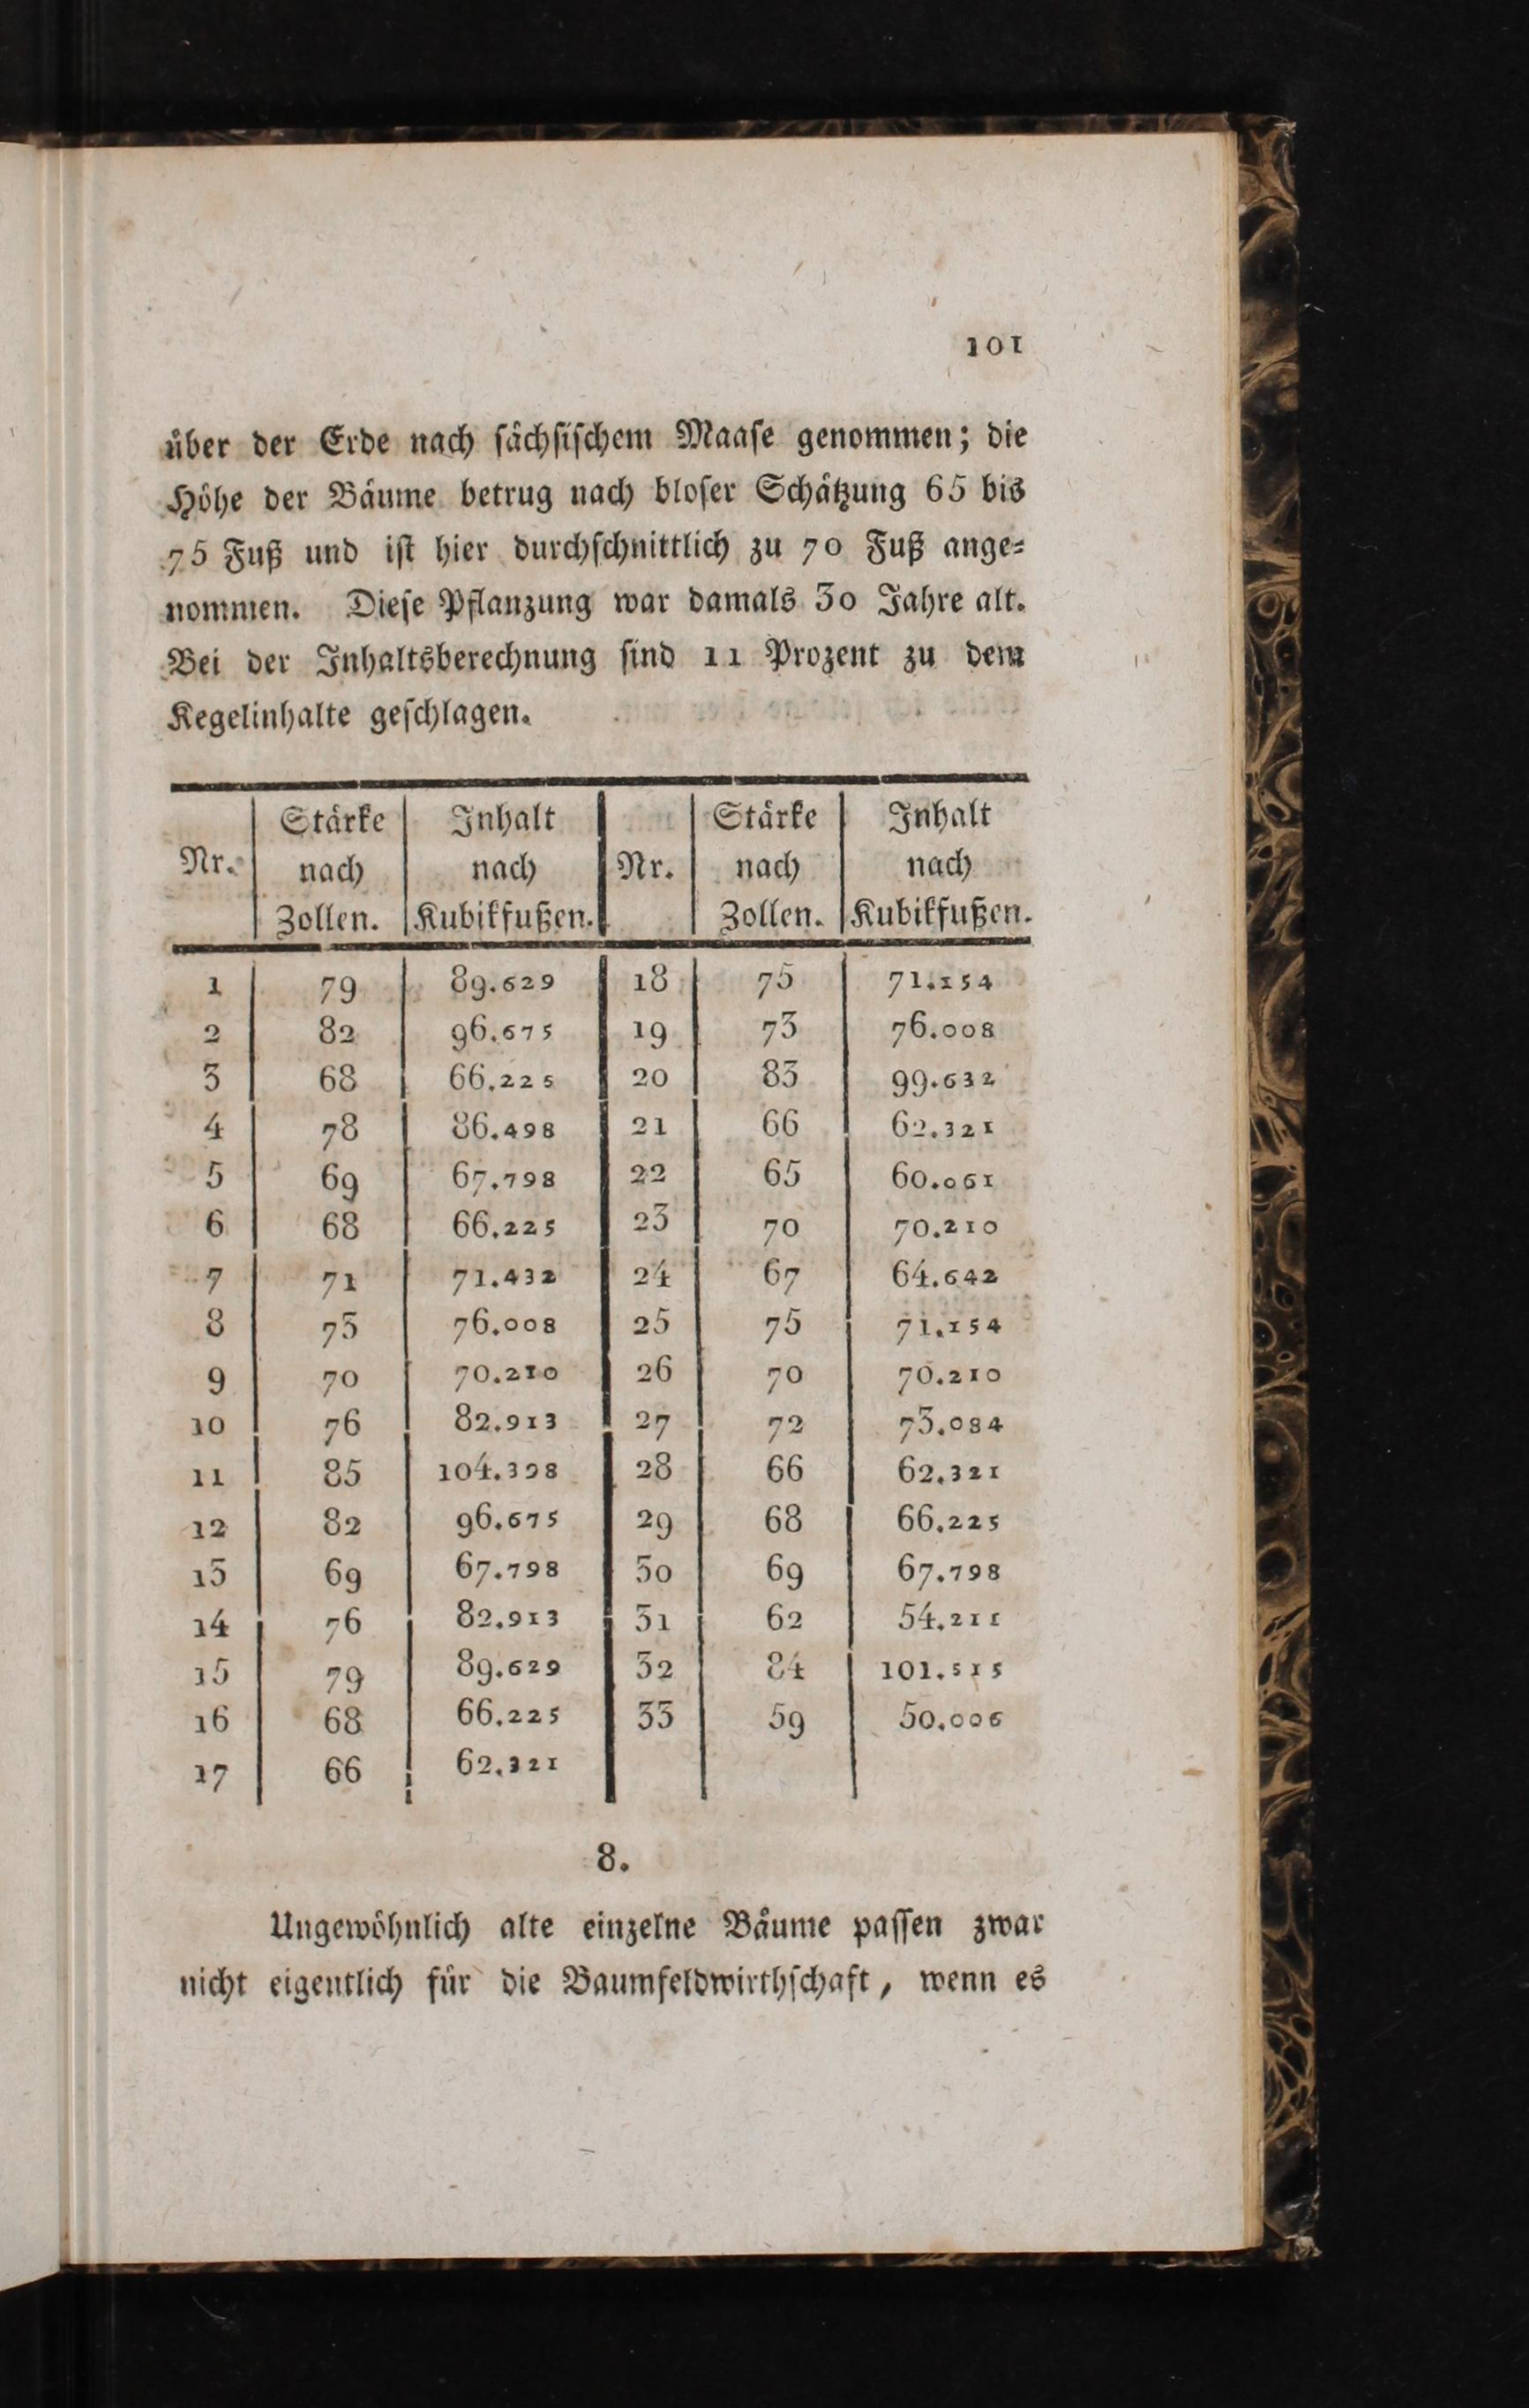 101
über der Erde nach ſächſiſchem Maaſe genommen; die
Höhe der Bäume betrug nach bloſer Schätzung 65 bis
75 Fuß und iſt hier durchſchnittlich zu 70 Fuß ange⸗
nommen. Dieſe Pflanzung war damals 30 Jahre alt.
Bei der Inhaltsberechnung ſind 11 Prozent zu dem
Kegelinhalte geſchlagen.
Nr. Stärke nach Zollen. Inhalt nach Kubikfußen. Nr. Stärke nach Zollen. Inhalt nach Kubikfußen.
1 79 89.629 18 75 71.154
2 82 96.675 19 73 76.008
3 68 66.225 20 83 99.632
4 78 86.498 21 66 62.321
5 69 67.798 22 65 60.061
6 68 66.225 23 70 70.210
7 71 71.432 24 67 64.642
8 73 76.008 25 75 71.154
9 70 70.210 26 70 70.210
10 76 82.913 27 72 73.084
11 85 104.398 28 66 62.321
12 82 96.675 29 68 66.225
13 69 67.798 30 69 67.798
14 76 82.913 31 62 54.211
15 79 89.629 32 84 101.515
16 68 66.225 33 59 50.006
17 66 62.321
8.
Ungewöhnlich alte einzelne Bäume paſſen zwar
nicht eigentlich für die Baumfeldwirthſchaft, wenn es